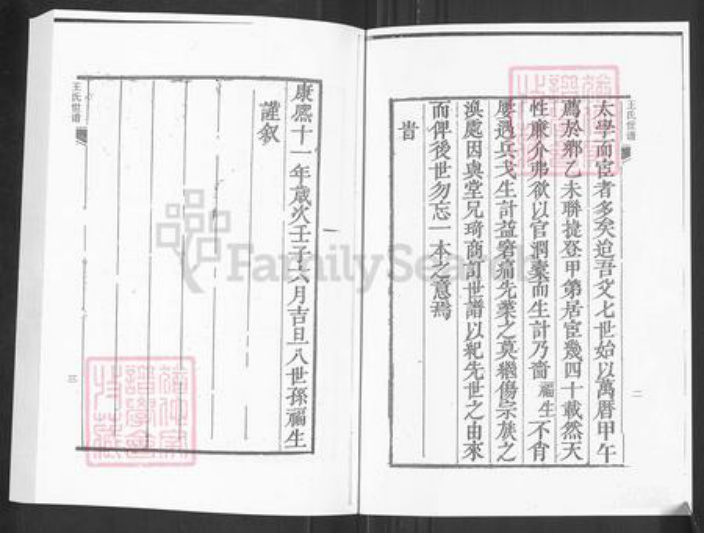 王氏世谱
太學而宦者多矣迨吾父七世始以萬曆甲午
薦於鄉乙未聯捷登甲第居宦幾四十載然天
性廉介弗欲以官潤橐而生計乃嗇福生不肖
屡遇兵戈生計益窘痛先業之莫繼傷宗族之
渙處因與堂兄琦商訂世譜以紀先世之由來
而俾後世勿忘一本之意焉
旹
二
康熙十一年歲次壬子六月吉旦八世孫福生
謹叙
王氏世谱
三
FamilySearch